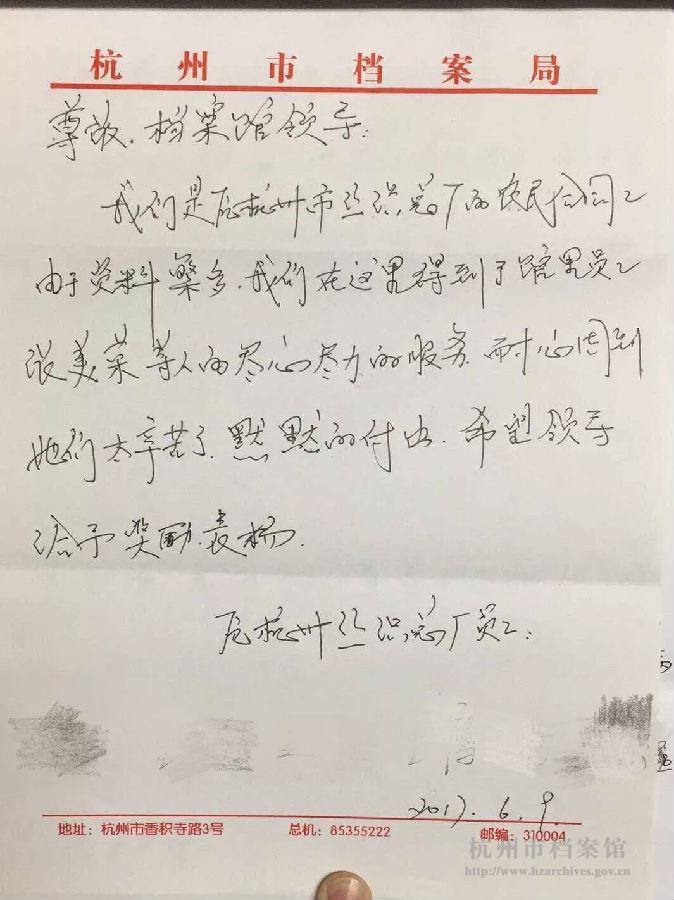 杭州市档案局
尊敬.档案馆领导:
我们是原杭州市丝织总厂的农民合同工
由于资料繁多.我们在这里得到了馆里员工
张美荣等人的尽心尽力的服务.耐心周到
她们太辛苦了.默默的付出.希望领导
给予奖励.表扬.
原杭州丝织总厂员工:
2017.6.9.
地址:杭州市香积寺路3号 总机:85355222 邮编:310004
杭州市档案馆
http://www.hzarchives.gov.cn